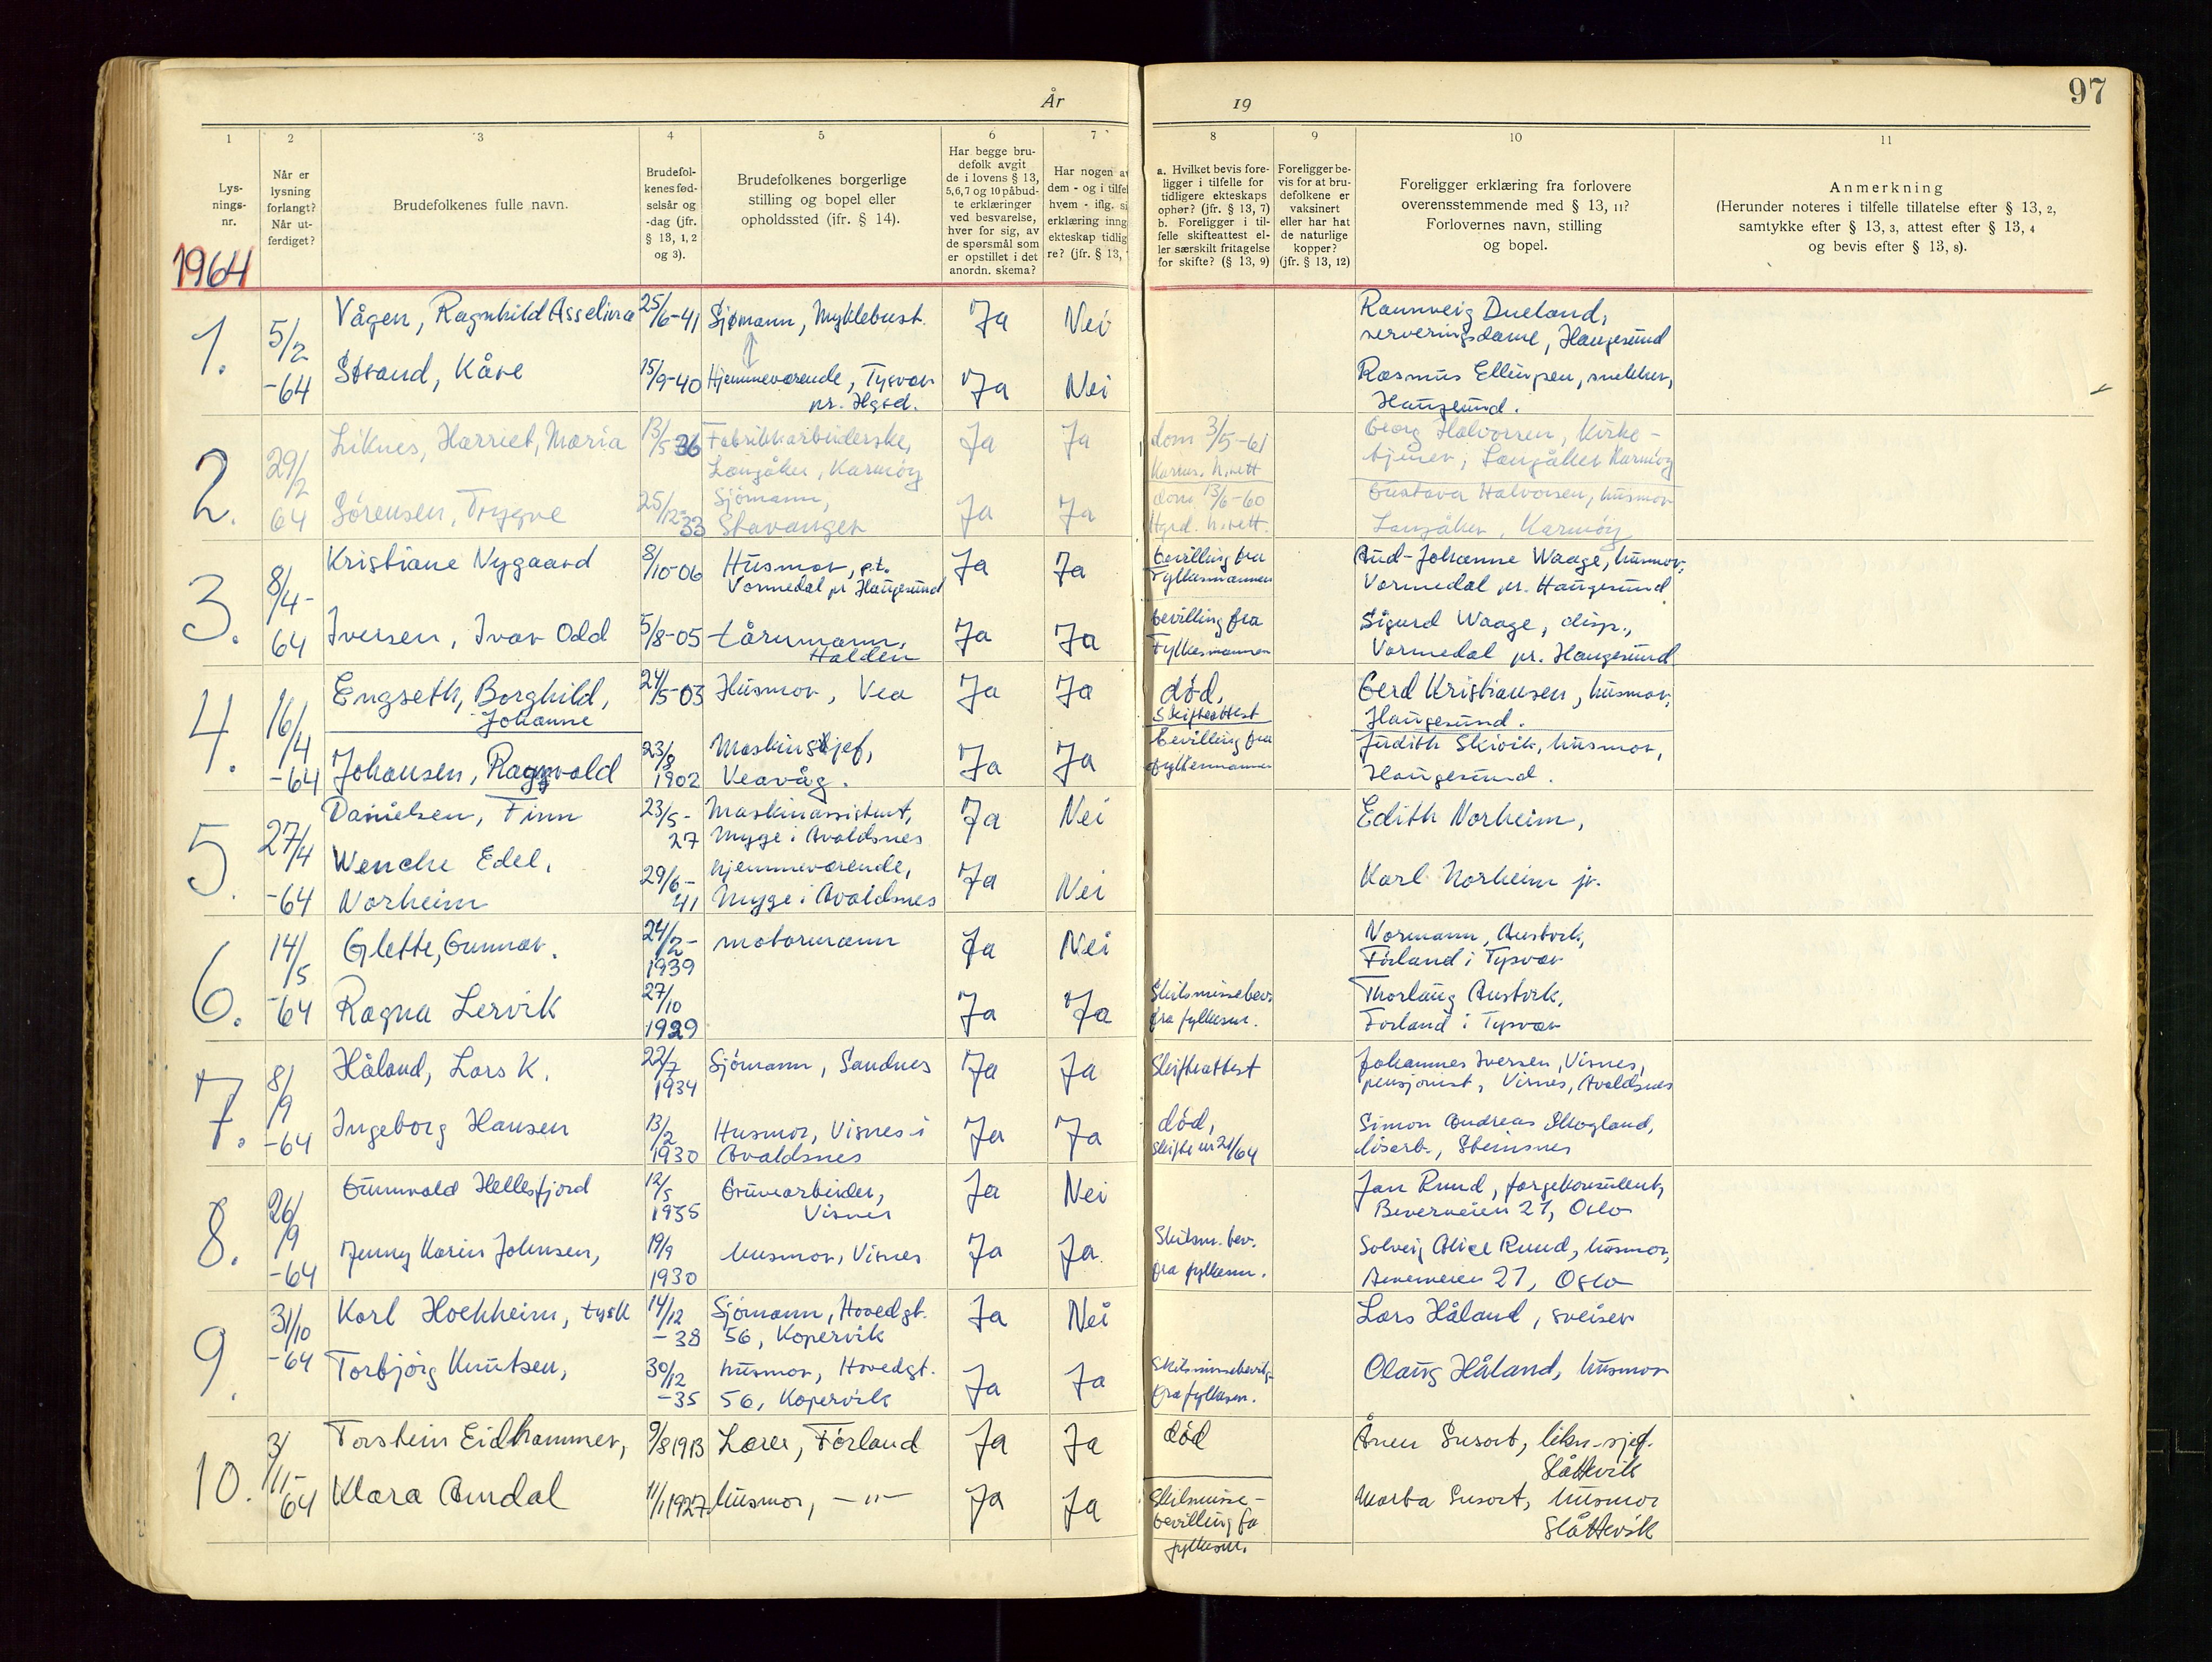 År 19
97
1 2 3 4 5 6 7 8 9 10 11
Lys-
nings-
nr.
Når er
lysning
forlangt?
Når ut-
ferdiget?
Brudefolkenes fulle navn.
Brudefol-
kenes fød-
selsår og
-dag (jfr.
§ 13, 1, 2
og 3).
Brudefolkenes borgerlige
stilling og bopel eller
opholdssted (ifr. § 14).
Har begge bru-
defolk avgit
de i lovens § 13,
5,6,7 og 10 påbud-
te erklæringer
ved besvarelse,
hver for sig, av
de spørsmål som
er opstillet i det
anordn. skema?
Har nogen av
dem - og i tilfel
hvem - iflg. si
erklæring inng
ekteskap tidlig
re? (jfr. § 13,
a. Hvilket bevis fore-
ligger i tilfelle for
tidligere ekteskaps
ophør? (jfr. § 13, 7)
b. Foreligger i til-
felle skifteattest el-
ler særskilt fritagelse
for skifte? (§ 13, 9)
Foreligger be-
vis for at bru-
defolkene er
vaksinert
eller har hat
de naturlige
kopper?
(jfr. § 13, 12)
Foreligger erklæring fra forlovere
overensstemmende med § 13, 11?
Forlovernes navn, stilling
og bopel.
Anmerkning
(Herunder noteres i tilfelle tillatelse efter § 13, 2,
samtykke efter § 13, 3, attest efter § 13, 4
og bevis efter § 13, 8).
1964
1. 5/2 -64
Vågen, Ragnhild Asselina 25/6-41 Sjømann, Myklebust. Ja Nei
Rannveig Dueland,
serveringsdame, Haugesund
Strand, Kåre 15/9-40 Hjemmeværende, Tysvær
pr. Hgsd. Ja Nei
Rasmus Ellingsen, snekker,
Haugesund.
2. 29/2 64
Liknes, Harriet, Maria 13/5 36 Fabrikkarbeiderske,
Langåker, Karmöy Ja Ja
dom 3/5-61
Karms. h.rett
Georg Halvorsen, Kirke-
tjener, Langåker Karmöy
Sørensen, Trygve 25/12-33 Sjömann,
Stavanger Ja Ja
dom 13/6-60
Hgsd. h.rett.
Gustava Halvorsen, husmor
Langåker, Karmöy
3. 8/4- 64
Kristiane Nygaard 8/10-06 Husmor, p.t.
Vormedal pr Haugesund Ja Ja
bevilling fra
Fylkesmannen
Aud-Johanne Waage, husmor,
Vormedal pr. Haugesund
Iversen, Ivar Odd 5/8-05 tårnmann,
Halden Ja Ja
bevilling fra
Fylkesmannen
Sigurd Waage, disp.,
Vormedal pr. Haugesund
4. 16/4 -64
Engseth, Borghild,
Johanne 24/5-03 Husmor, Vea Ja Ja
död,
Skifteattest
Gerd Kristiansen, husmor,
Haugesund.
Johansen, Ragnvald 23/8 1902 Maskinsjef,
Veavåg. Ja Ja
bevilling fra
fylkesmannen
Judith Skivik, husmor,
Haugesund.
5. 27/4 -64
Danielsen, Finn 23/5-27 Maskinassistent,
Mygge i Avaldsnes Ja Nei
Edith Norheim,
Wenche Edel,
Norheim 29/6-41 hjemmeværende,
Mygge i Avaldsnes Ja Nei
Karl Norheim jr.
6. 14/5 -64
Glette, Gunnar. 24/2-1939 motormann Ja Nei
Normann, Austvik,
Förland i Tysvær
Ragna Lervik 27/10 1929 Ja Ja
Skilsmissebev.
fra fylkesm.
Thorlaug Austvik,
Forland i Tysvær
7. 8/9 -64
Håland, Lars K. 22/7 1934 Sjömann, Sandnes Ja Ja
Skifteattest
Johannes Iversen, Visnes,
pensjonist, Visnes, Avaldsnes
Ingeborg Hansen 13/2 1930 Husmor, Visnes i
Avaldsnes Ja Ja
död,
skifte nr 21/64
Simon Andreas Skogland,
lösarb., Steinsnes
8. 26/9 -64
Gunnvald Hellesfjord 12/5 1935 Gruvearbeider,
Visnes Ja Nei
Jan Ruud, fargekonsulent,
Beverveien 21, Oslo
Jenny Karin Johnsen, 19/9 1930 husmor, Visnes Ja Ja
Skilsm. bev.
fra fylkesm.
Solveig Alice Ruud, husmor,
21, Oslo
9. 31/10 -64
Karl Hochheim, tysk 14/12 -38 Sjömann, Hovedgt.
56, Kopervik Ja Nei
Lars Håland, sveiser
Torbjörg Knutsen, 30/12 -35 husmor, Hovedgt.
56, Kopervik Ja Ja
Skilsmissebevilg.
fra fylkesm.
Olaug Håland, husmor
10. 3/11-64
Torstein Eidhammer, 9/8 1913 Lærer, Förland Ja Ja
död
Susort, likn-sjef.
Slåttevik
Klara Amdal 11/1 1927 husmor, —"— Ja Ja
Skilsmisse-
bevilling fa
fylkesm.
Marta Susort, husmor
Slåttevik